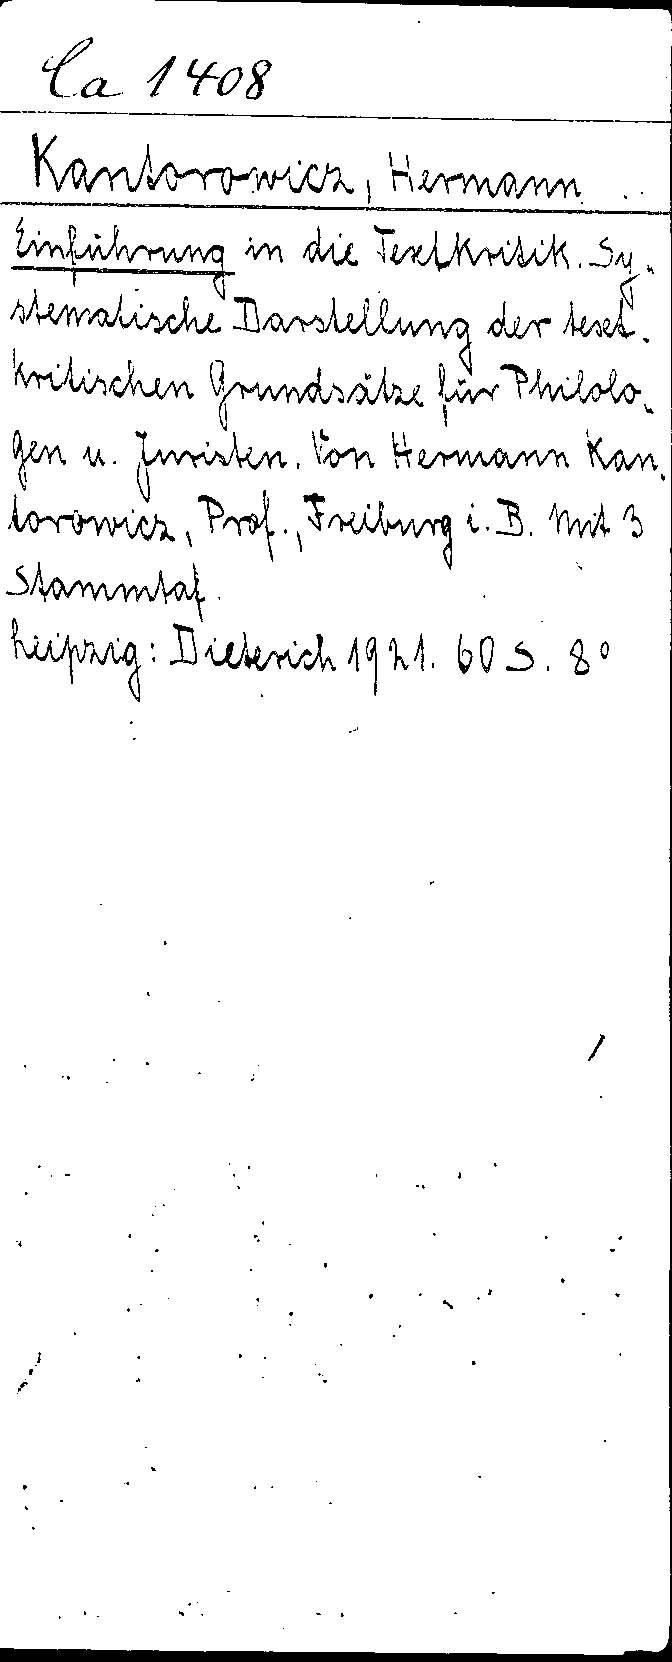 Ca 1408
Kantorowicz, Hermann
Einführung in die Textkritik. Sy-
stematische Darstellung der text-
kritischen Grundsätze für Philolo-
gen u. Juristen. Von Hermann Kan-
torowicz, Prof., Freiburg i. B. Mit 3
Stammtaf.
Leipzig: Dieterich 1921. 60 S. 8°